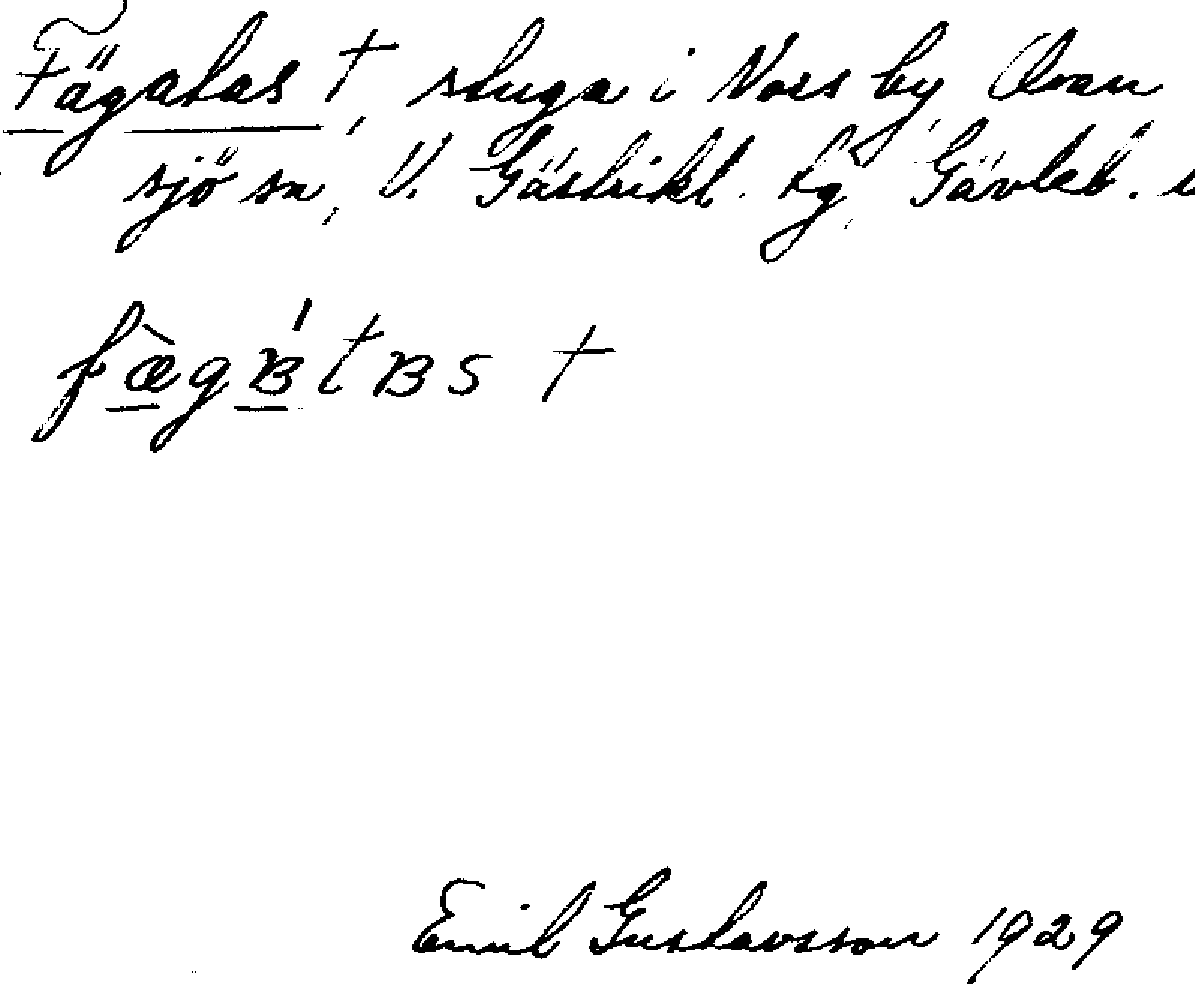 Fägatas †, stuga i Vass by, Ovan
sjö sn, V. Gästrikl. tg, Gävleb.
fæ̀gʙ́tʙs †
Emil Gustavsson 1929